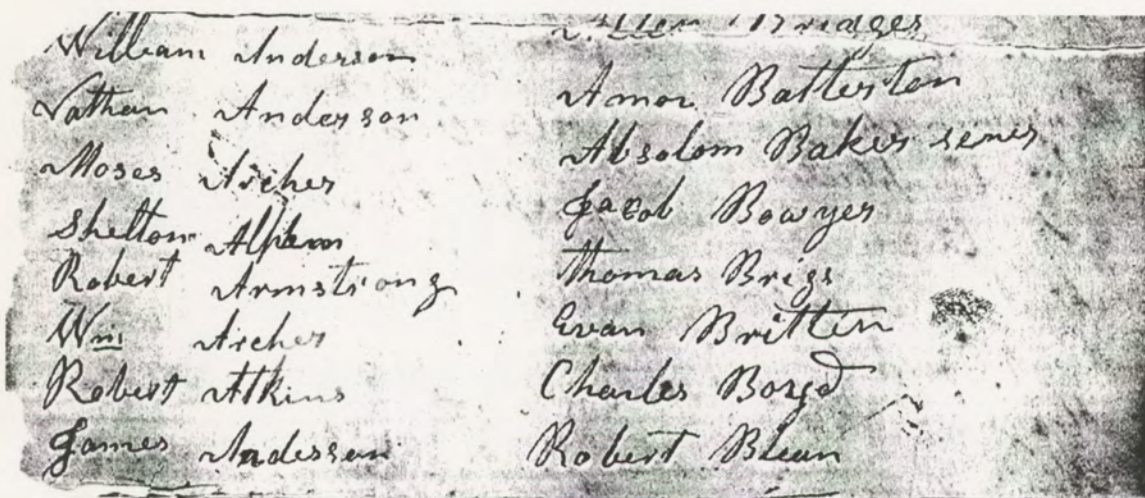 William Anderson
Nathan Anderson
Moses Archer
Shelton
Robert Armstrong
Wm Archer
Robert Atkins
James Anderson
Allen Bridges
Amor Batterton
Absolom Baker
Jacob Bowyer
Thomas Brigs
Evan Britten
Charles Boyd
Robert Blean